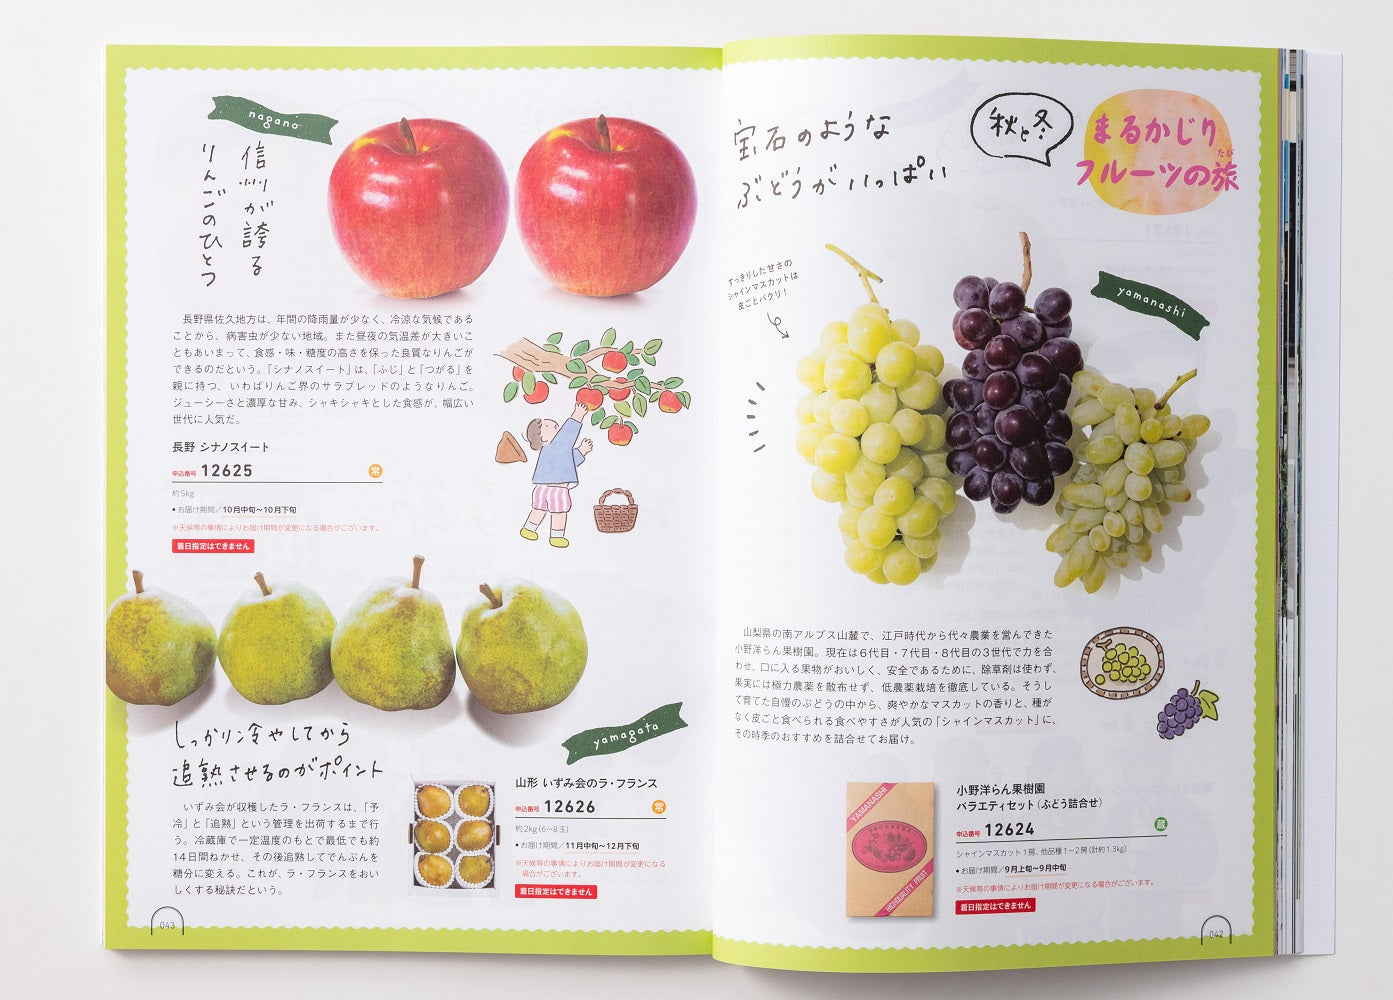 秋と冬
まるかじり
フルーツの旅
たび
宝石のような
ぶどうがいっぱい
すっきりした甘さの
シャインマスカットは
皮ごとパクリ！
yamanashi
山梨県の南アルプス山麓で、江戸時代から代々農業を営んできた
小野洋らん果樹園。現在は6代目・7代目・8代目の3世代で力を合
わせ、口に入る果物がおいしく、安全であるために、除草剤は使わず、
果実には極力農薬を散布せず、低農薬栽培を徹底している。そうし
て育てた自慢のぶどうの中から、爽やかなマスカットの香りと、種が
なく皮ごと食べられる食べやすさが人気の「シャインマスカット」に、
その時季のおすすめを詰合せてお届け。
YAMANASHI
HIGHQUALITY FRUIT
小野洋らん果樹園
バラエティセット（ぶどう詰合せ）
申込番号 12624 蔵
シャインマスカット1房、他品種1〜2房（計約1.3kg）
•お届け期間／9月上旬〜9月中旬
※天候等の事情によりお届け期間が変更になる場合がございます。
着日指定はできません
042
nagano
信州が誇る
りんごのひとつ
長野県佐久地方は、年間の降雨量が少なく、冷涼な気候である
ことから、病害虫が少ない地域。また昼夜の気温差が大きいこ
ともあいまって、食感・味・糖度の高さを保った良質なりんごが
できるのだという。「シナノスイート」は、「ふじ」と「つがる」を
親に持つ、いわばりんご界のサラブレッドのようなりんご。
ジューシーさと濃厚な甘み、シャキシャキとした食感が、幅広い
世代に人気だ。
長野 シナノスイート
申込番号 12625 常
約5kg
•お届け期間／10月中旬〜10月下旬
※天候等の事情によりお届け期間が変更になる場合がございます。
着日指定はできません
しっかり冷やしてから
追熟させるのがポイント
yamagata
いずみ会が収穫したラ・フランスは、「予
冷」と「追熟」という管理を出荷するまで行
う。冷蔵庫で一定温度のもとで最低でも約
14日間ねかせ、その後追熟してでんぷんを
糖分に変える。これが、ラ・フランスをおい
しくする秘訣だという。
山形 いずみ会のラ・フランス
申込番号 12626 常
約2kg（6〜8玉）
•お届け期間／11月中旬〜12月下旬
※天候等の事情によりお届け期間が変更になる
場合がございます。
着日指定はできません
043